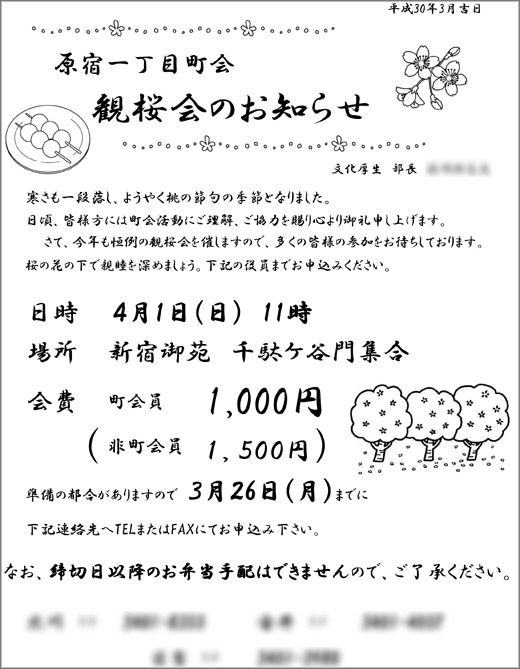 平成30年3月吉日
原宿一丁目町会
観桜会のお知らせ
文化厚生 部長
寒さも一段落し、ようやく桃の節句の季節となりました。
日頃、皆様方には町会活動にご理解、ご協力を賜り心より御礼申し上げます。
さて、今年も恒例の観桜会を催しますので、多くの皆様の参加をお待ちしております。
桜の花の下で親睦を深めましょう。下記の役員までお申込みください。
日時 4月1日(日) 11時
場所 新宿御苑 千駄ケ谷門集合
会費 町会員 1,000円
(非町会員 1,500円)
準備の都合がありますので 3月26日(月)までに
下記連絡先へTELまたはFAXにてお申込み下さい。
なお、締切日以降のお弁当手配はできませんので、ご了承ください。